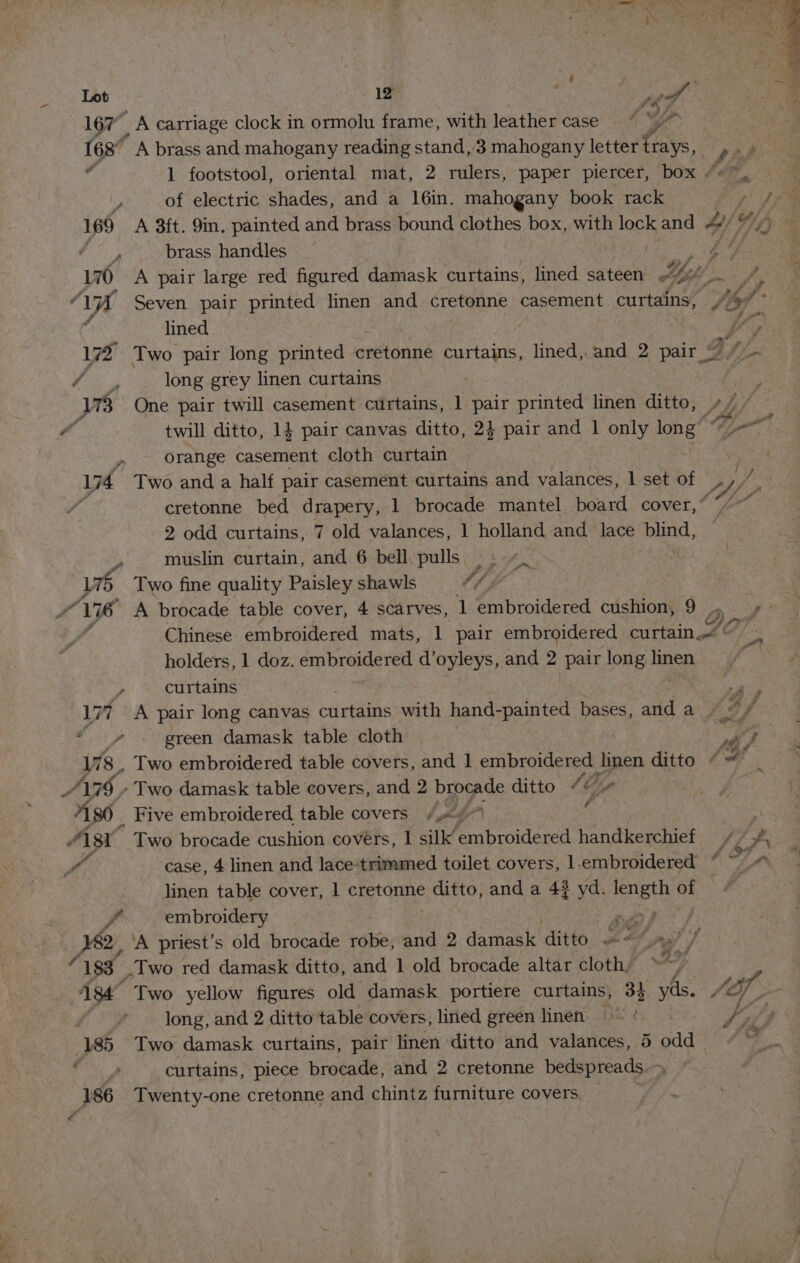 Lot 12
167 A carriage clock in ormolu frame, with leather case
168 A brass and mahogany reading stand, 3 mahogany letter trays,
1 footstool, oriental mat, 2 rulers, paper piercer, box
of electric shades, and a 16in. mahogany book rack
169 A 3ft. 9in. painted and brass bound clothes box, with lock and
brass handles
170 A pair large red figured damask curtains, lined sateen
171 Seven pair printed linen and cretonne casement curtains,
lined
172 Two pair long printed cretonne curtains, lined, and 2 pair
long grey linen curtains
173 One pair twill casement curtains, 1 pair printed linen ditto,
twill ditto, 1½ pair canvas ditto, 2½ pair and 1 only long
orange casement cloth curtain
174 Two and a half pair casement curtains and valances, 1 set of
cretonne bed drapery, 1 brocade mantel board cover,
2 odd curtains, 7 old valances, 1 holland and lace blind,
muslin curtain, and 6 bell pulls
175 Two fine quality Paisley shawls
176 A brocade table cover, 4 scarves, 1 embroidered cushion, 9
Chinese embroidered mats, 1 pair embroidered curtain
holders, 1 doz. embroidered d'oyleys, and 2 pair long linen
curtains
177 A pair long canvas curtains with hand-painted bases, and a
green damask table cloth
178 Two embroidered table covers, and 1 embroidered linen ditto
179 Two damask table covers, and 2 brocade ditto
180 Five embroidered table covers
181 Two brocade cushion covers, 1 silk embroidered handkerchief
case, 4 linen and lace-trimmed toilet covers, 1 embroidered
linen table cover, 1 cretonne ditto, and a 4¾ yd. length of
embroidery
182 A priest's old brocade robe, and 2 damask ditto
183 Two red damask ditto, and 1 old brocade altar cloth
184 Two yellow figures old damask portiere curtains, 3½ yds.
long, and 2 ditto table covers, lined green linen
185 Two damask curtains, pair linen ditto and valances, 5 odd
curtains, piece brocade, and 2 cretonne bedspreads
186 Twenty-one cretonne and chintz furniture covers